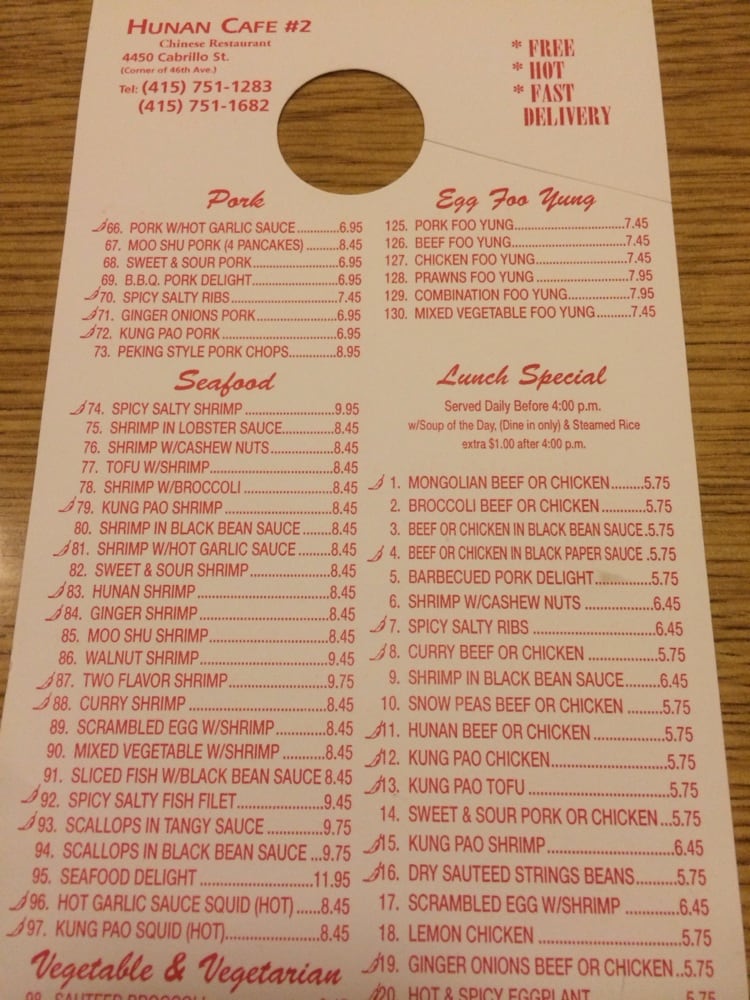 HUNAN CAFE #2
Chinese Restaurant
4450 Cabrillo St.
(Corner of 46th Ave.)
Tel: (415) 751-1283
(415) 751-1682
* FREE
* HOT
* FAST
DELIVERY
Pork
66. PORK W/HOT GARLIC SAUCE............6.95
67. MOO SHU PORK (4 PANCAKES) ........8.45
68. SWEET & SOUR PORK........................6.95
69. B.B.Q. PORK DELIGHT........................6.95
70. SPICY SALTY RIBS.............................7.45
71. GINGER ONIONS PORK.......................6.95
72. KUNG PAO PORK..............................6.95
73. PEKING STYLE PORK CHOPS...............8.95
Seafood
74. SPICY SALTY SHRIMP ........................9.95
75. SHRIMP IN LOBSTER SAUCE................8.45
76. SHRIMP W/CASHEW NUTS..................8.45
77. TOFU W/SHRIMP................................8.45
78. SHRIMP W/BROCCOLI ........................8.45
79. KUNG PAO SHRIMP...........................8.45
80. SHRIMP IN BLACK BEAN SAUCE .......8.45
81. SHRIMP W/HOT GARLIC SAUCE ........8.45
82. SWEET & SOUR SHRIMP....................8.45
83. HUNAN SHRIMP................................8.45
84. GINGER SHRIMP................................8.45
85. MOO SHU SHRIMP.............................8.45
86. WALNUT SHRIMP...............................9.45
87. TWO FLAVOR SHRIMP........................9.75
88. CURRY SHRIMP ................................8.45
89. SCRAMBLED EGG W/SHRIMP...............8.45
90. MIXED VEGETABLE W/SHRIMP ............8.45
91. SLICED FISH W/BLACK BEAN SAUCE 8.45
92. SPICY SALTY FISH FILET.....................9.45
93. SCALLOPS IN TANGY SAUCE ..............9.75
94. SCALLOPS IN BLACK BEAN SAUCE ...9.75
95. SEAFOOD DELIGHT ..........................11.95
96. HOT GARLIC SAUCE SQUID (HOT) ......8.45
97. KUNG PAO SQUID (HOT).....................8.45
Vegetable & Vegetarian
98. SAUTEED BROCCOLI
Egg Foo Yung
125. PORK FOO YUNG............................7.45
126. BEEF FOO YUNG............................7.45
127. CHICKEN FOO YUNG......................7.45
128. PRAWNS FOO YUNG ......................7.95
129. COMBINATION FOO YUNG...............7.95
130. MIXED VEGETABLE FOO YUNG.........7.45
Lunch Special
Served Daily Before 4:00 p.m.
w/Soup of the Day, (Dine in only) & Steamed Rice
extra $1.00 after 4:00 p.m.
1. MONGOLIAN BEEF OR CHICKEN.........5.75
2. BROCCOLI BEEF OR CHICKEN............5.75
3. BEEF OR CHICKEN IN BLACK BEAN SAUCE.5.75
4. BEEF OR CHICKEN IN BLACK PAPER SAUCE .5.75
5. BARBECUED PORK DELIGHT...............5.75
6. SHRIMP W/CASHEW NUTS .................6.45
7. SPICY SALTY RIBS .............................6.45
8. CURRY BEEF OR CHICKEN .................5.75
9. SHRIMP IN BLACK BEAN SAUCE.........6.45
10. SNOW PEAS BEEF OR CHICKEN .........5.75
11. HUNAN BEEF OR CHICKEN.................5.75
12. KUNG PAO CHICKEN..........................5.75
13. KUNG PAO TOFU ...............................5.75
14. SWEET & SOUR PORK OR CHICKEN...5.75
15. KUNG PAO SHRIMP...........................6.45
16. DRY SAUTEED STRINGS BEANS.........5.75
17. SCRAMBLED EGG W/SHRIMP .............6.45
18. LEMON CHICKEN ..............................5.75
19. GINGER ONIONS BEEF OR CHICKEN..5.75
20. HOT & SPICY EGGPLANT 5.75